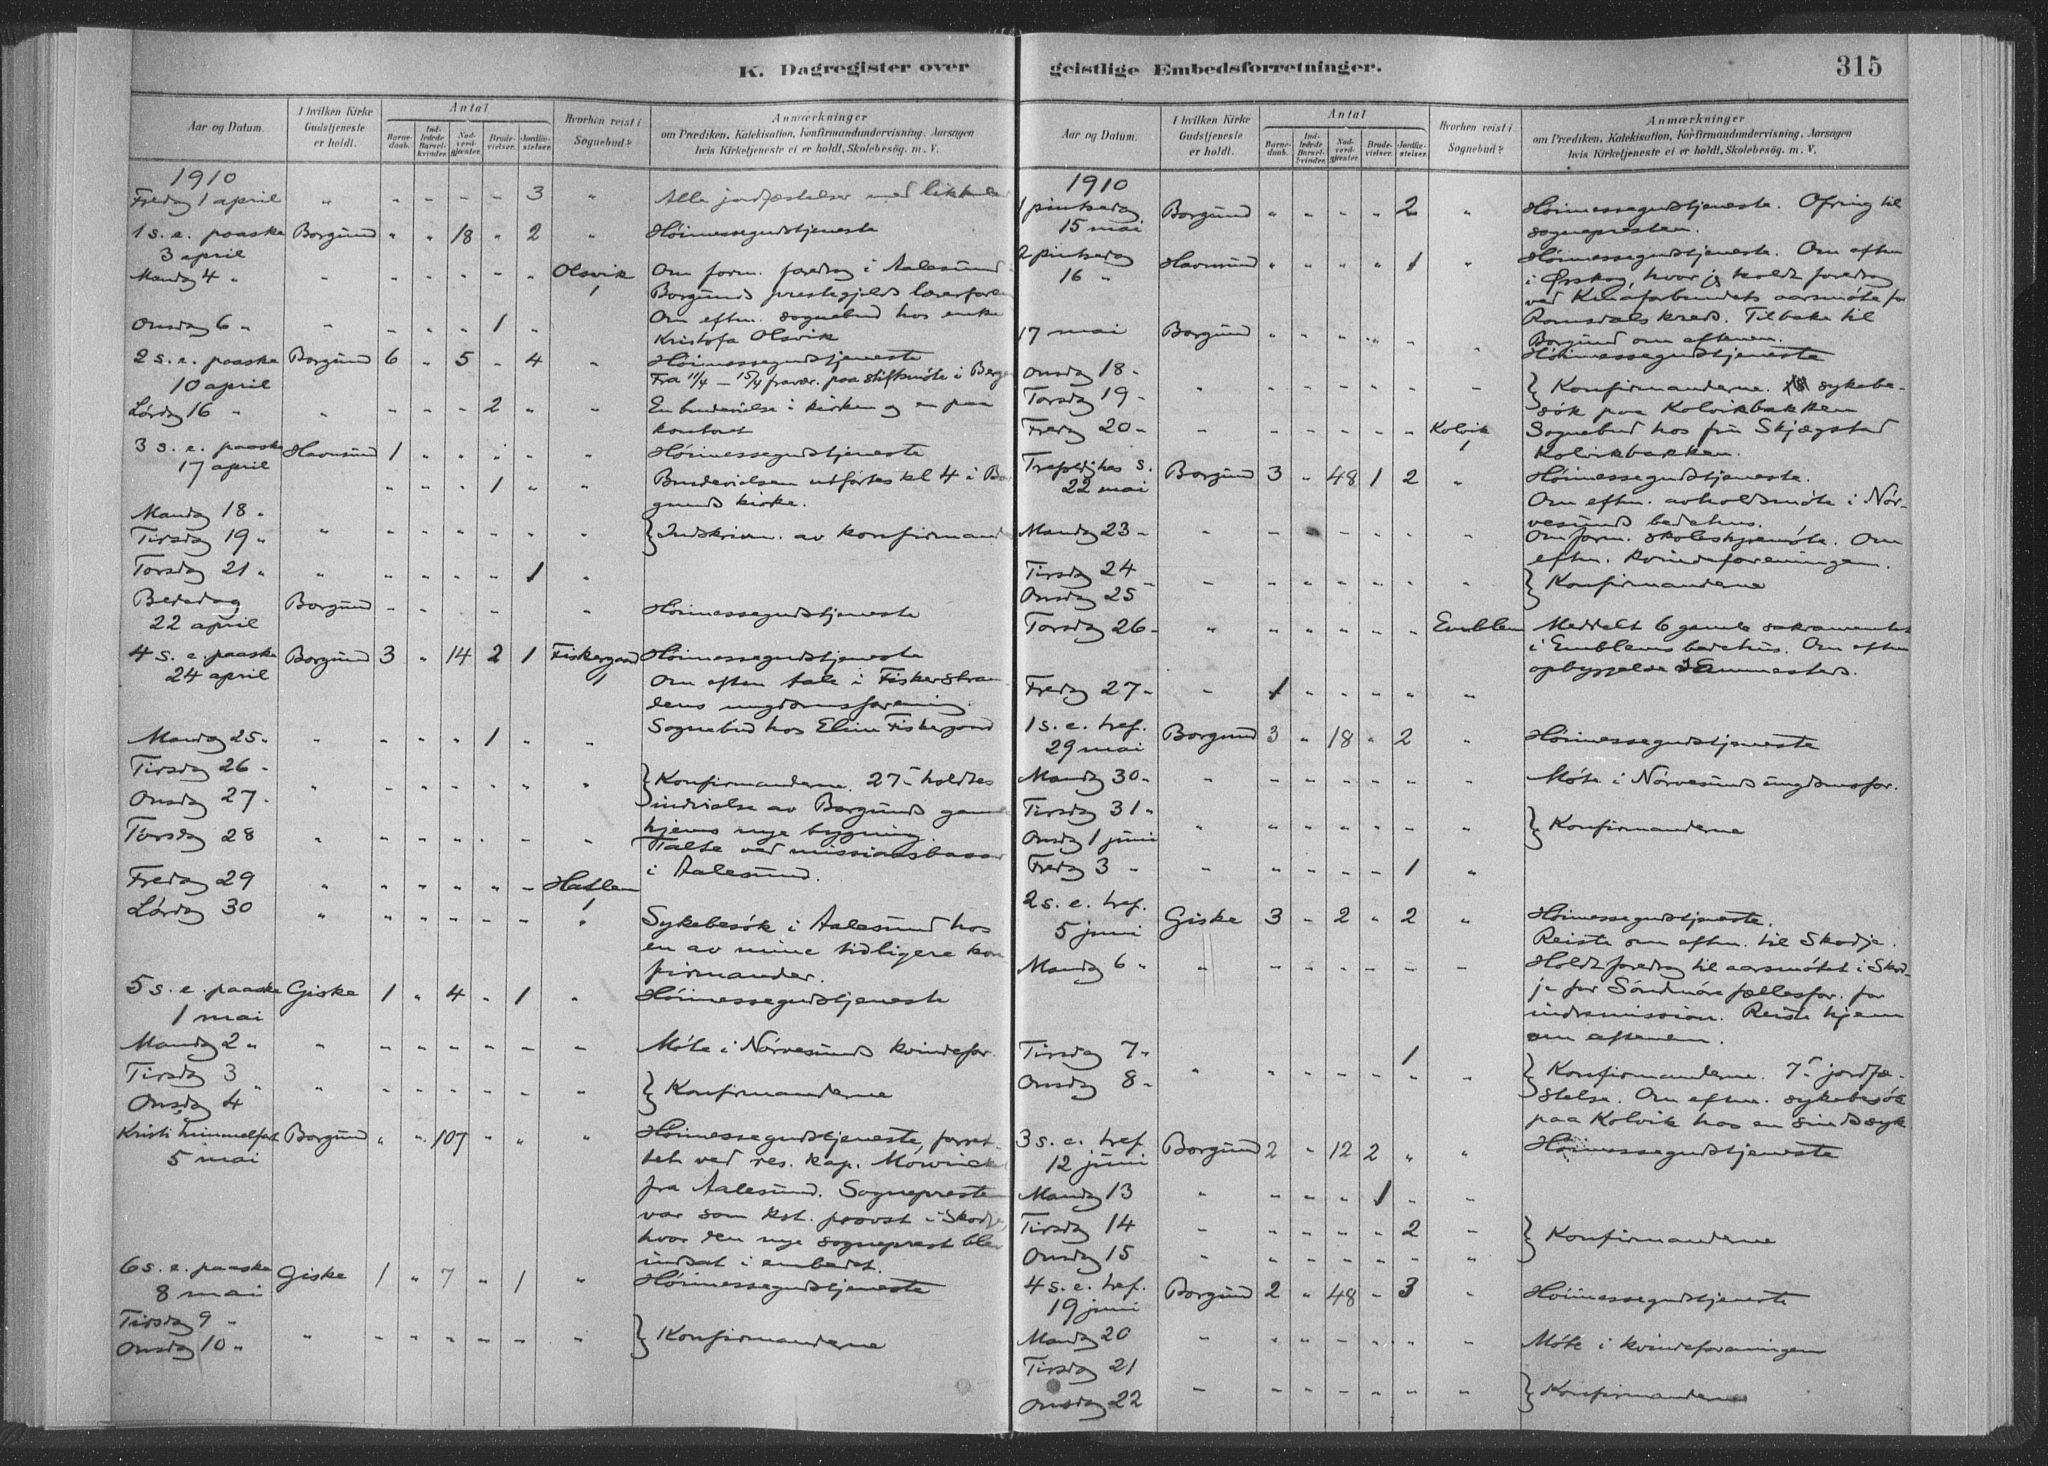 K. Dagregister over
Aar og Datum.
I hvilken Kirke Gudstjeneste er holdt.
Antal
Barnedaab.
Indledede Barselkvinder.
Nadverdgjæster.
Brudevielser.
Jordfæstelser.
Hvorhen reist i Sognebud?
Anmærkninger
om Prædiken, Katekisation, Konfirmandundervisning, Aarsagen
hvis Kirketjeneste ei er holdt, Skolebesøg. m. V.
1910
Fredag 1 april " - - - - 3 " Alle jordfæstelser med
1 s. e. paaske Borgund " " 18 " 2 " Høimessegudstjeneste
3 april
Mandag 4 " " - - - - - Olsvik Om form. foredrag i Aalesund
Borgunds prestegjelds
Onsdag 6 " " - - - 1 - Om eftm. sognebud hos enke
Kristofa Olsvik
2 s. e. paaske Borgund 6 " 5 - 4 " Høimessegudstjeneste
10 april Fra 11/4 – 15/4 fravær. paa stiftsmøte i
Lørdag 16 " " - - - 2 " " En brudevielse i kirken og en paa
kontoret
3 s. e. paaske Havnsund 1 " " " " " Høimessegudstjeneste
17 april " " " 1 " " Brudevielsen utførtes kl 4 i
gunds kirke.
Mandag 18 "
Tirsdag 19 " " - - - - - " } Indskrivn. av
Torsdag 21 " " - - - - 1 "
Bededag Borgund - - " Høimessegudstjeneste
22 april
4 s. e. paaske Borgund 3 " 14 2 1 Fiskergaard Høimessegudstjeneste
24 april Om eftm tale i
dens ungdomsforening.
Mandag 25 " " - - - 1 " " Sognebud hos Eline Fiskergaard
Tirsdag 26 "
Onsdag 27 " " - - - - - " } Konfirmanderne. 27- holdtes
indvielse av Borgunds
hjems nye bygning.
Torsdag 28 " - - - - - " Talte ved
i Aalesund.
Fredag 29 " - - - - - Hatlem
Lørdag 30 " - - - - - " Sykebesøk i Aalesund hos
en av mine tidligere
firmander.
5 s. e. paaske Giske 1 " 4 " 1 " Høimessegudstjeneste
1 mai
Mandag 2 " " - - - - - - Møte i Nørvesunds kvindefor.
Tirsdag 3 "
Onsdag 4 " - - - - - " } Konfirmanderne
Kristi himmelfart Borgund " " 107 " " " Høimessegudstjeneste,
5 mai tet ved res. kap.
fra Aalesund. Sognepresten
var som kst. provst i Skodje,
hvor den nye sogneprest blev
indsat i embedet.
6 s. e. paaske Giske 1 " 7 " 1 " Høimessegudstjeneste
8 mai
Tirsdag 9 "
Onsdag 10 " " - - - - - " } Konfirmanderne
geistlige Embedsforretninger.
315
Aar og Datum.
I hvilken Kirke Gudstjeneste er holdt.
Antal
Barnedaab.
Indledede Barselkvinder.
Nadverdgjæster.
Brudevielser.
Jordfæstelser.
Hvorhen reist i Sognebud?
Anmærkninger
om Prædiken, Katekisation, Konfirmandundervisning, Aarsagen
hvis Kirketjeneste ei er holdt, Skolebesøg. m. V.
1910
1 pintsedag Borgund " " " " 2 " Høimessegudstjeneste. Ofring til
15 mai sognepresten.
2 pintsedag Havnsund " " " " 1 " Høimessegudstjeneste. Om eftm
16 " i Ørskog, hvor jeg holdt foredrag
ved Kinaforbundets aarsmøte for
Romsdals kreds. Tilbake til
17 mai Borgund " - - - - " Borgund om aftenen.
Høimessegudstjeneste
Onsdag 18 -
Torsdag 19 - - - - - - - - } Konfirmanderne. sykebe-
søk paa Kolvikbakken
Fredag 20 - - - - - - - Kolvik Sognebud hos fru Skjægstad
Kolvikbakken.
Trefoldighets s. Borgund 3 " 48 1 2 " Høimessegudstjeneste.
22 mai Om eftm. avholdsmøte i Nør-
vesunds bedehus.
Mandag 23 - - - - - - - - Om form. skolestyremøte. Om
eftm. kvindeforeningen.
Tirsdag 24 -
Onsdag 25 - - - - - - - } Konfirmanderne
Torsdag 26 - " - - - - - Emblem Meddelt 6 gamle sakramentet
i Emblems bedehus. Om eftm
opbyggelse
Fredag 27 - - 1 - - - - "
1 s. e. tref. Borgund 3 " 18 " 2 " Høimessegudstjeneste
29 mai
Mandag 30 - " - - - - - - Møte i Nørvesunds ungdomsfor.
Tirsdag 31 -
Onsdag 1 juni " - - - - - " } Konfirmanderne
Fredag 3 - - - - - - 1 "
2 s. e. tref. Giske 3 - 2 " 2 " Høimessegudstjeneste.
5 juni Reiste om eftm. til Skodje.
Mandag 6 " " - - - - - - Holdt foredrag til aarsmøtet i Skod-
je for Søndmøre fællesfor. for
indremission. Reiste hjem
om aftenen.
Tirsdag 7 - 1
Onsdag 8 - " - - - - - - } Konfirmanderne. 7- jordfæ-
stelse. Om eftm. sykebesøk
paa Kolvik hos en sindssyk
3 s. e. tref. Borgund 2 " 12 2 " " Høimessegudstjeneste
12 juni
Mandag 13 " - - - 1 - -
Tirsdag 14 - - - - - 2 -
Onsdag 15 " - - - - - " } Konfirmanderne
4 s. e. tref. Borgund 2 " 48 - 3 " Høimessegudstjeneste
19 juni
Mandag 20 - - - - - - - Møte i kvindeforeningen
Tirsdag 21
Onsdag 22 - - - - - - - } Konfirmanderne